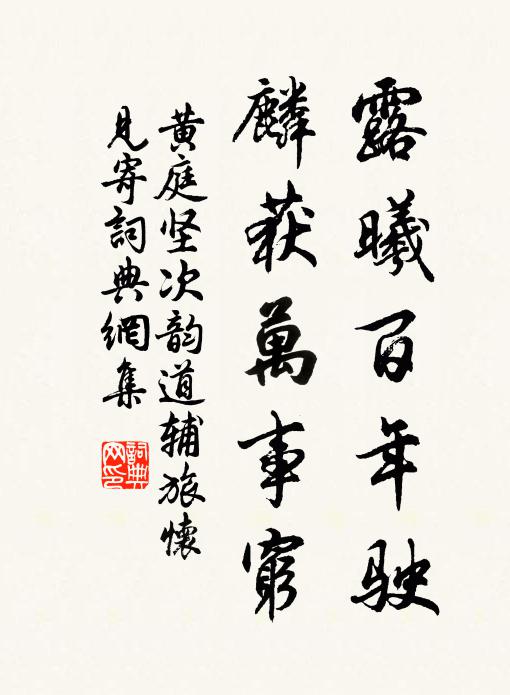 露曦百年駛
麟获萬事窮
黄庭坚次韵道辅旅懷
見寄詞典網集
詞典网印